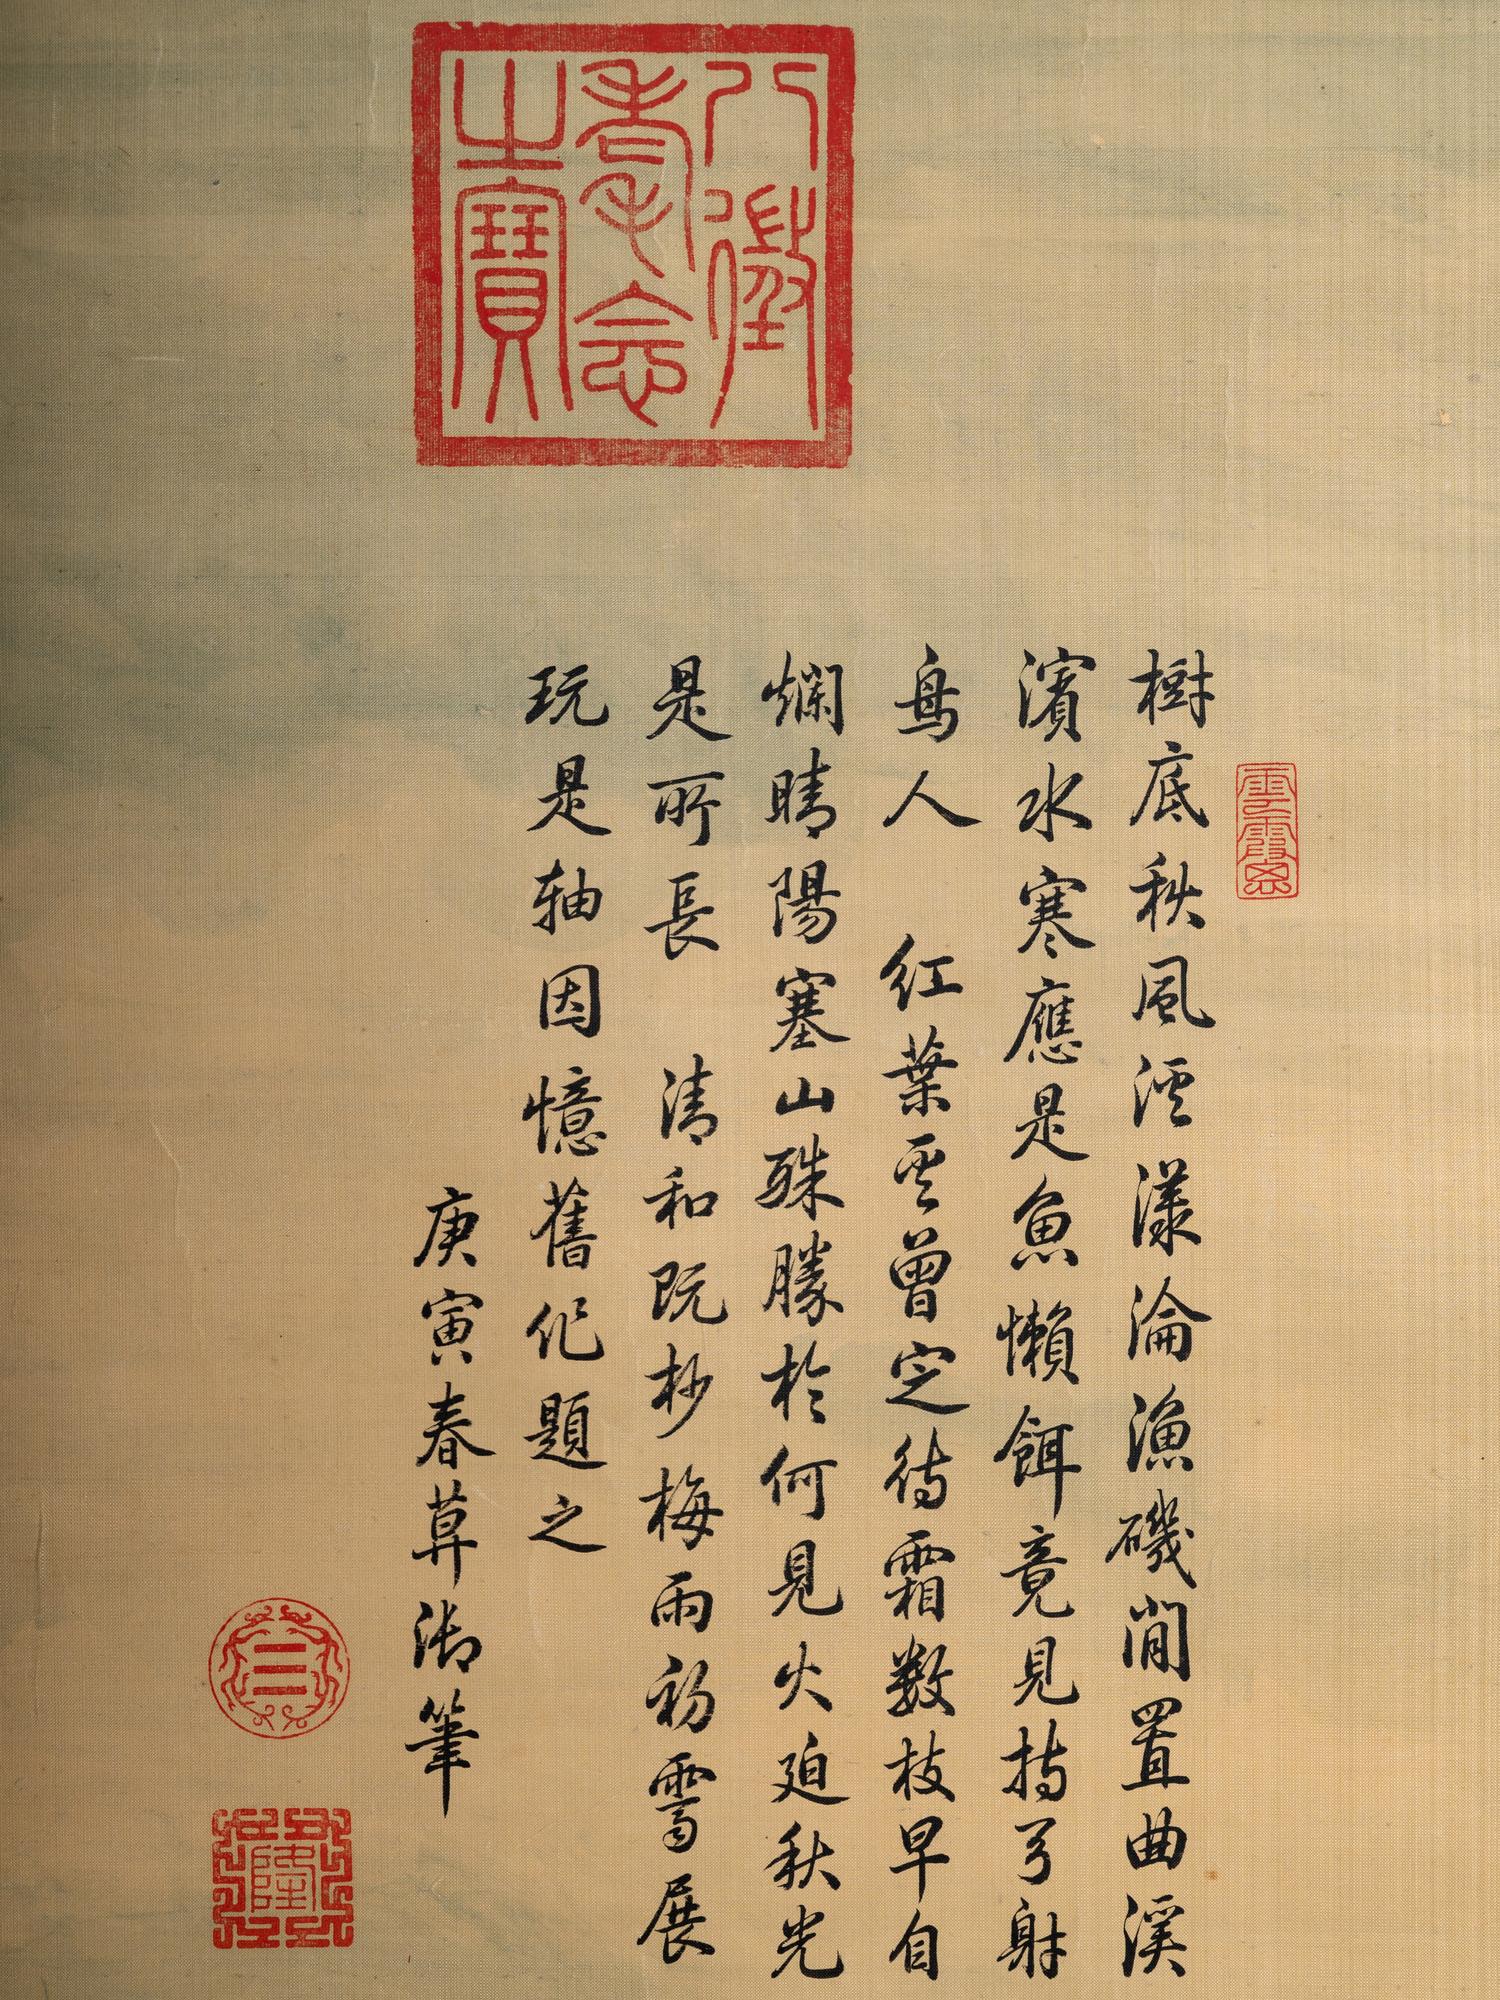 八徵
耄念
之寶
雲霞思
樹底秋風泛漾淪漁磯閒置曲溪
濱水寒應是魚懶餌竟見持弓射
鳥人 紅葉雲曾定待霜數枝早自
爛晴陽塞山殊勝於何見火迫秋光
是所長 清和既杪梅雨初霽展
玩是軸因憶舊作題之
庚寅春莫御筆
☰
乾隆